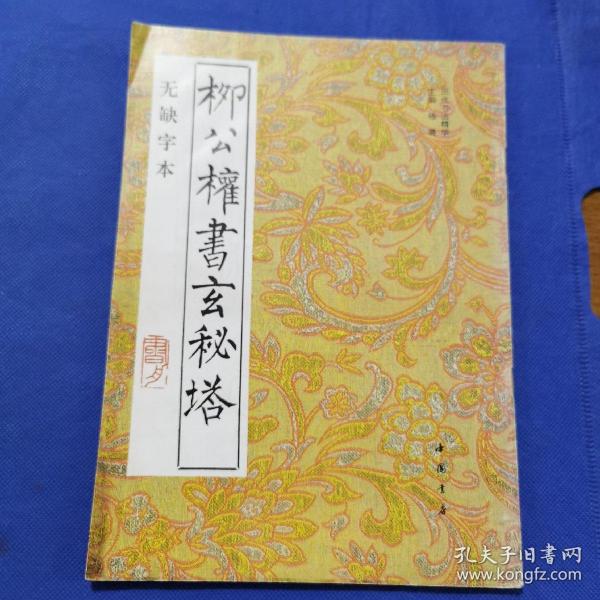 柳公權書玄秘塔
无缺字本
中国書店
孔夫子旧書网
www.kongfz.com